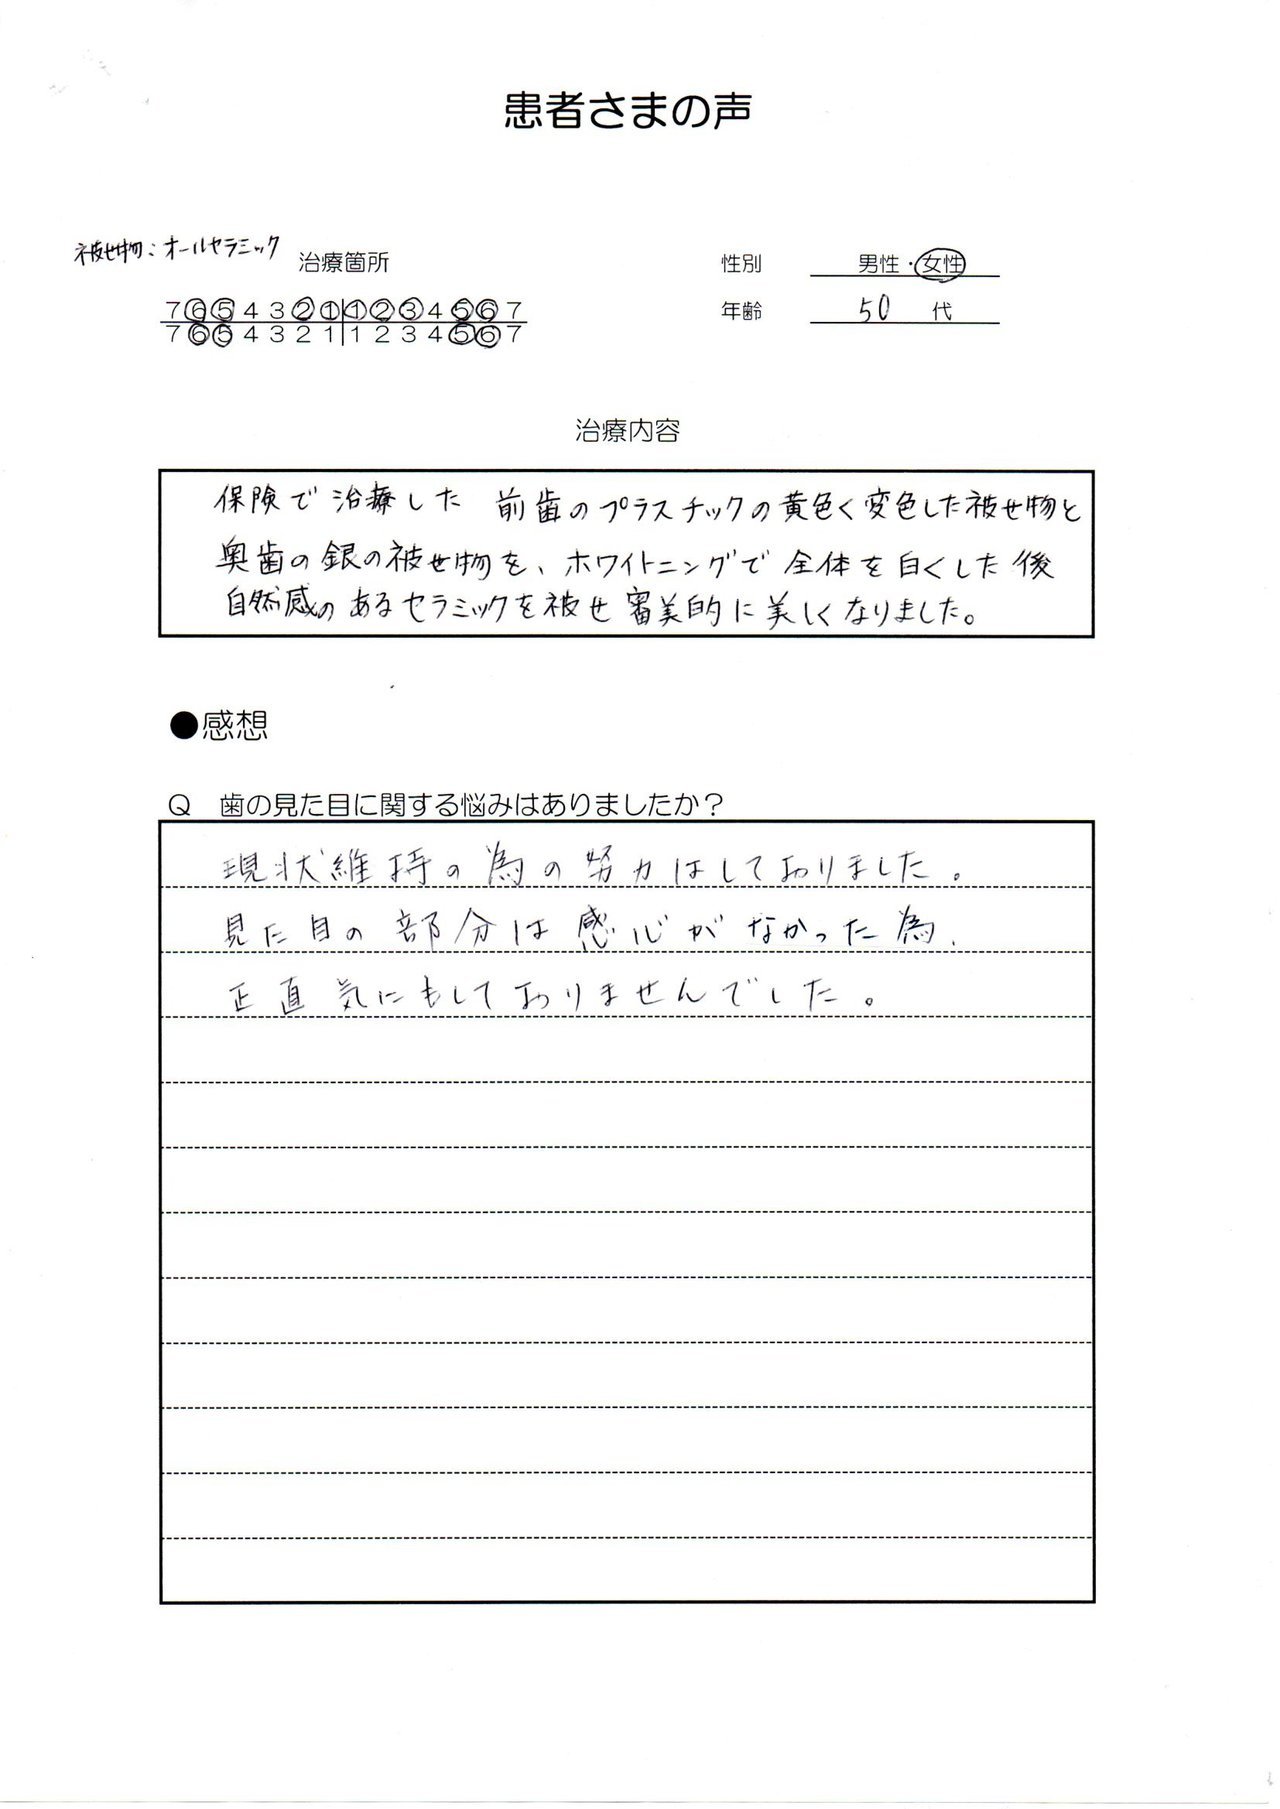 患者さまの声
被せ物：オールセラミック
治療箇所
性別 男性・女性
7 6 5 4 3 2 1 1 2 3 4 5 6 7
7 6 5 4 3 2 1 1 2 3 4 5 6 7
年齢 50 代
治療内容
保険で治療した 前歯のプラスチックの黄色く変色した被せ物と
奥歯の銀の被せ物を、ホワイトニングで全体を白くした後
自然感のあるセラミックを被せ審美的に美しくなりました。
●感想
Q 歯の見た目に関する悩みはありましたか？
現状維持の為の努力はしておりました。
見た目の部分は感心がなかった為、
正直気にもしておりませんでした。